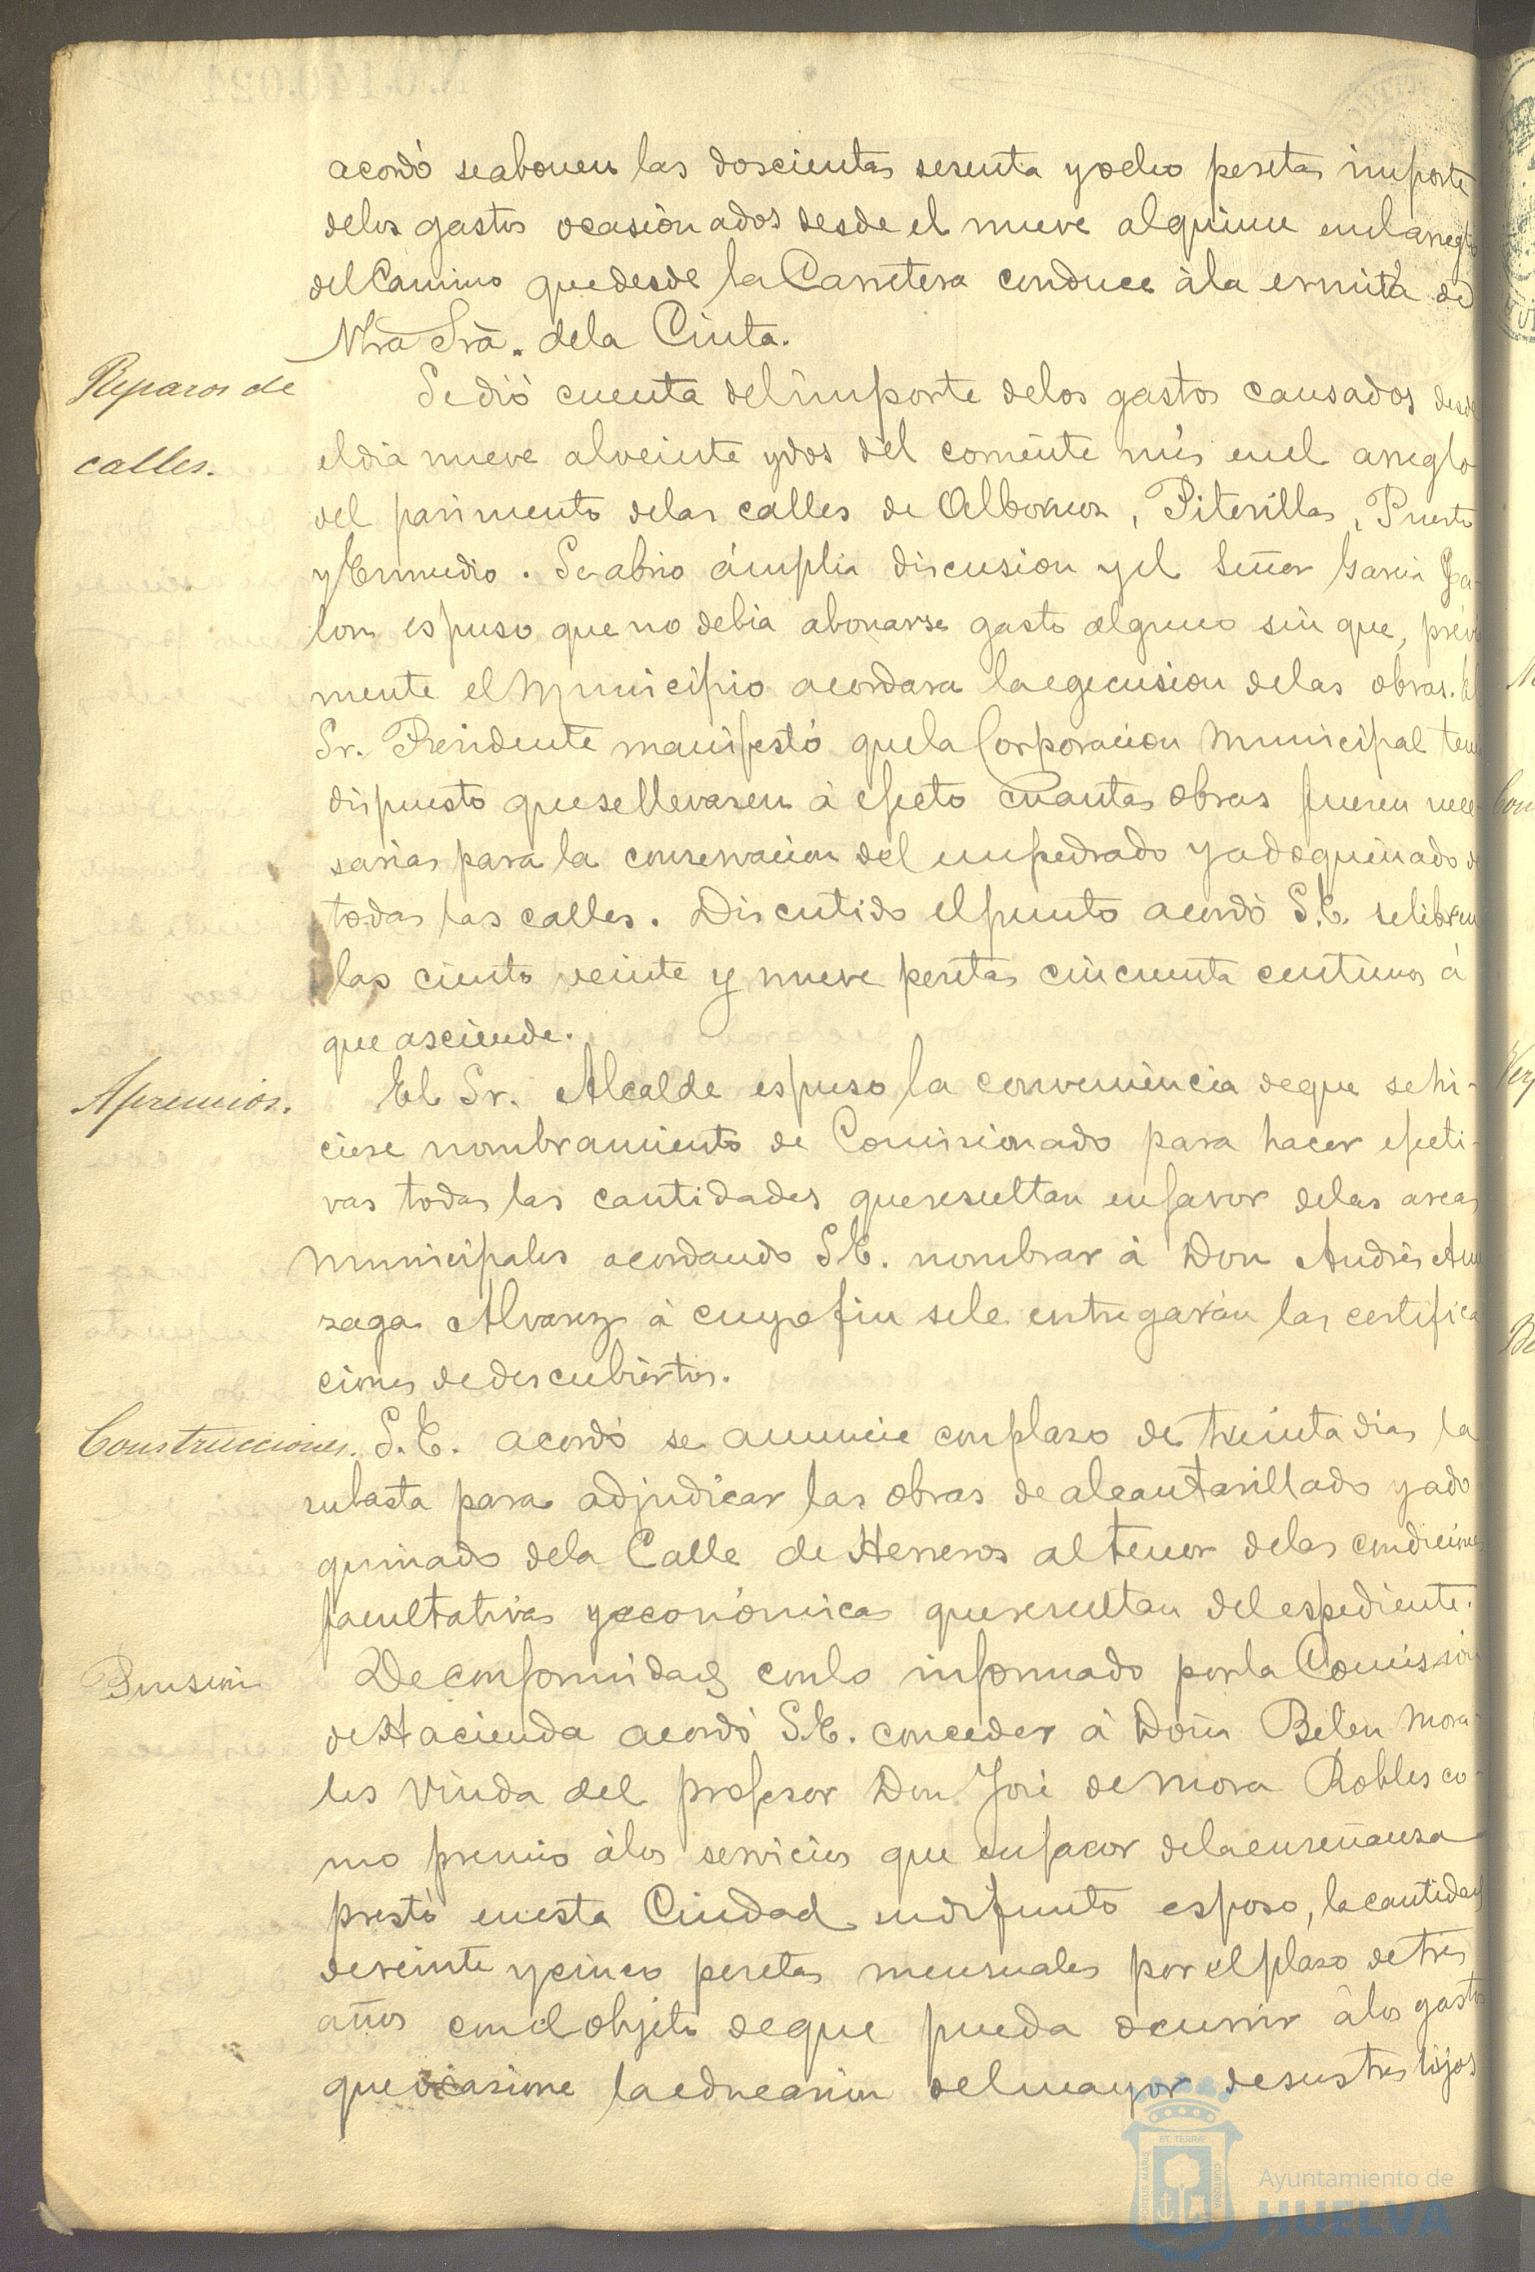 acordó se abonen las doscientas sesenta y ocho pesetas importe
de los gastos ocasionados desde el nueve al quince en el arreglo
del Camino que desde la Carretera conduce à la ermita de
Ntra Sra. de la Cinta.
Reparos de
calles.
Se dió cuenta del importe de los gastos causados desde
el dia nueve al veinte y dos del corriente mes en el arreglo
del pavimento de las calles de Albornoz, Piterillas, Puerto
y Enmedio. Se abrio ámplia discusion y el Señor Garcia Ja-
lon espuso que no debia abonarse gasto alguno sin que, prévia
mente el Municipio acordara la egecusion de las obras. El
Sr. Presidente manifestó que la Corporacion Municipal tenia
dispuesto que se llevasen à efecto cuantas obras fueren nece-
sarias para la conservacion del empedrado y adoquinado de
todas las calles. Discutido el punto acordó S.E. se libren
las ciento veinte y nueve pesetas cincuenta centimos á
que asciende.
Apremios.
El Sr. Alcalde espuso la conveniencia de que se hi-
ciese nombramiento de Comisionado para hacer efecti-
vas todas las cantidades que resultan en favor de las arcas
municipales acordando S.E. nombrar à Don Andrés
zaga Alvarez à cuyo fin se le entregarán las certifica
ciones de descubiertos.
Construcciones.
S.E. acordó se anuncie con plazo de treinta dias la
subasta para adjudicar las obras de alcantarillado y ado
quinado de la Calle de Herreros al tenor de las condiciones
facultativas y económicas que resultan del espediente.
Pension
De conformidad con lo informado por la Comission
de Hacienda acordó S.E. conceder à Doña Belen Mora-
les Viuda del profesor Don José de Mora Robles co-
mo premio à los servicios que en favor de la enseñanza
prestó en esta Ciudad su difunto esposo, la cantidad
de veinte y cinco pesetas mensuales por el plazo de tres
años con el objeto de que pueda ocurrir à los gastos
que ocasione la educacion del mayor de sus tres hijos
Ayuntamiento de
HUELVA